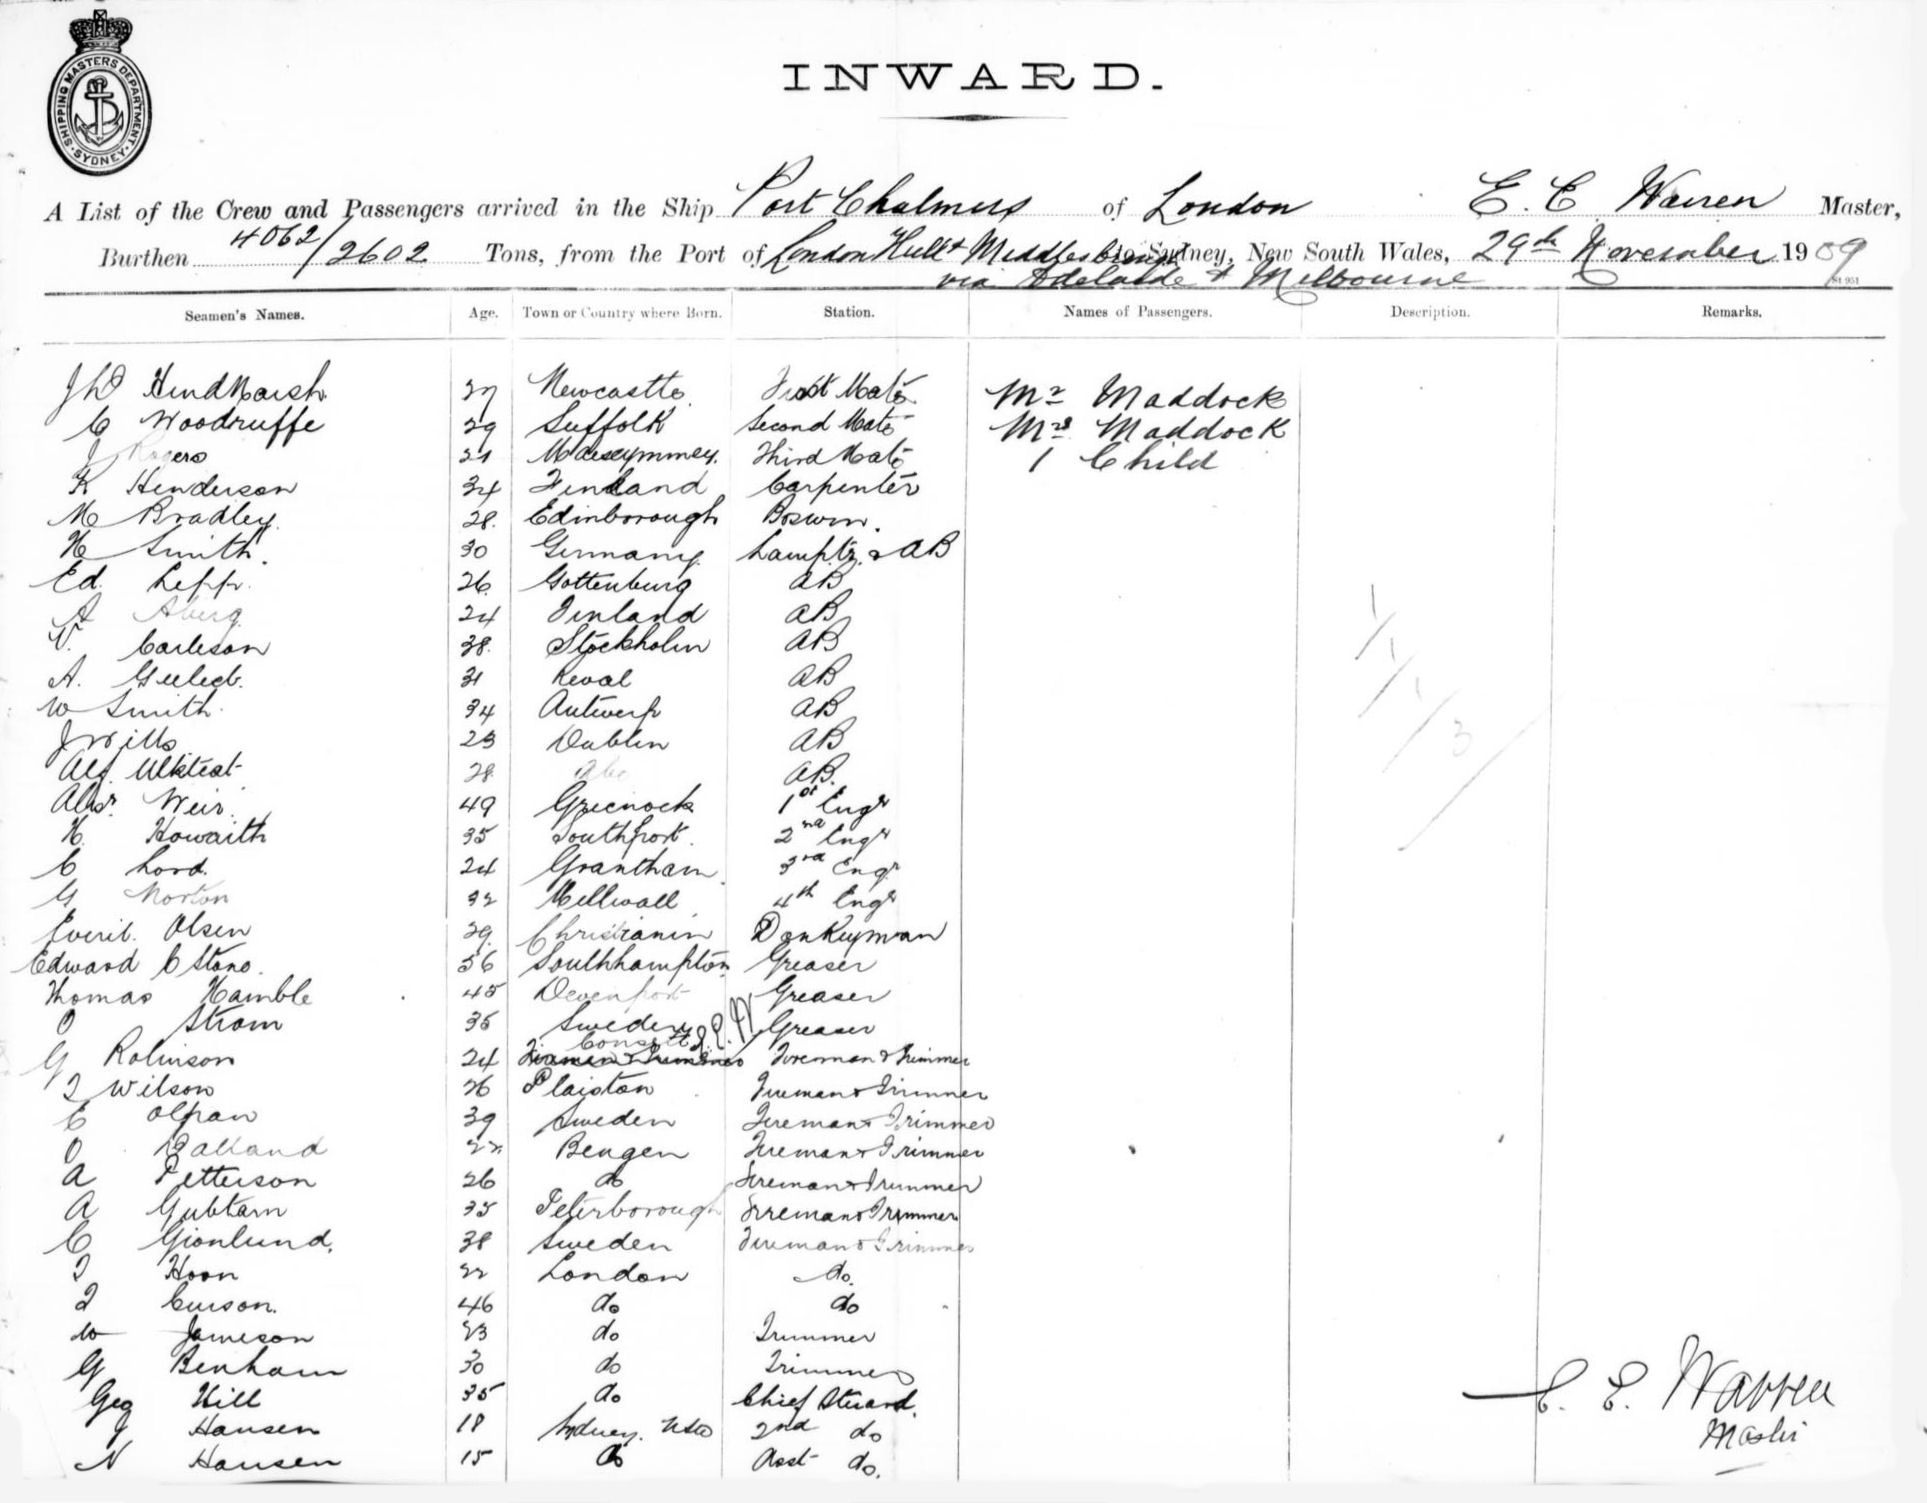 SHIPPING MASTERS DEPARTMENT. SYDNEY
INWARD.
A List of the Crew and Passengers arrived in the Ship Port Chalmers of London E. C Warren Master,
Burthen 4062/2602 Tons, from the Port of London Hull & Middlesbrough to Sydney, New South Wales, 29th November 1909
via Adelaide & Melbourne
Seamen's Names. Age. Town or Country where Born. Station. Names of Passengers. Description. Remarks.
Hindmarsh 37 Newcastle First Mate Mr Maddock
C Woodruffe 29 Suffolk Second Mate Mrs Maddock
J Rogers 21 Third Mate 1 Child
K Henderson 34 Finland Carpenter
M Bradley 28 Edinborough Boswn.
H Smith. 30 Germany Lamptr. & AB
Ed. Lepp. 26 Gottenburg AB
A Aberg 24 Finland AB
V. Carleson 38 Stockholm AB
A. 31 Reval AB
W Smith 34 Antwerp AB
J Wills 23 Dublin AB
Alf. 28 Abo AB.
Alexr Weir 49 Greenock 1st Engr
H. Howarth 35 Southport. 2nd Engr
C Lord. 24 Grantham 3rd Engr
G Norton 32 Millwall 4th Engr
Olsen 29 Christianin Donkeyman
Edward C Stone. 56 Southhampton Greaser
Thomas Hamble 45 Devenport Greaser
O Strom 35 Sweden Greaser
Consett
G Robinson 24 Fireman & Trimmer Fireman & Trimmer
J Wilson 26 Plaiston Fireman & Trimmer
C 39 Sweden Fireman & Trimmer
O Balland 22 Bengen Fireman & Trimmer
A Petterson 26 do Fireman & Trimmer
A Gubtam 35 Peterborough Fireman & Trimmer
C Gionlund. 38 Sweden Fireman & Trimmer
J Hoon 22 London do.
J Curson. 46 do do
W Jameson 23 do Trimmer
G Benham 30 do Trimmer
Geo Hill 35 do Chief Steward.
J Hansen 18 Sydney. NSW 2nd do
N Hansen 15 do Asst do.
1/1/1/3/
E. C. Warren
Master